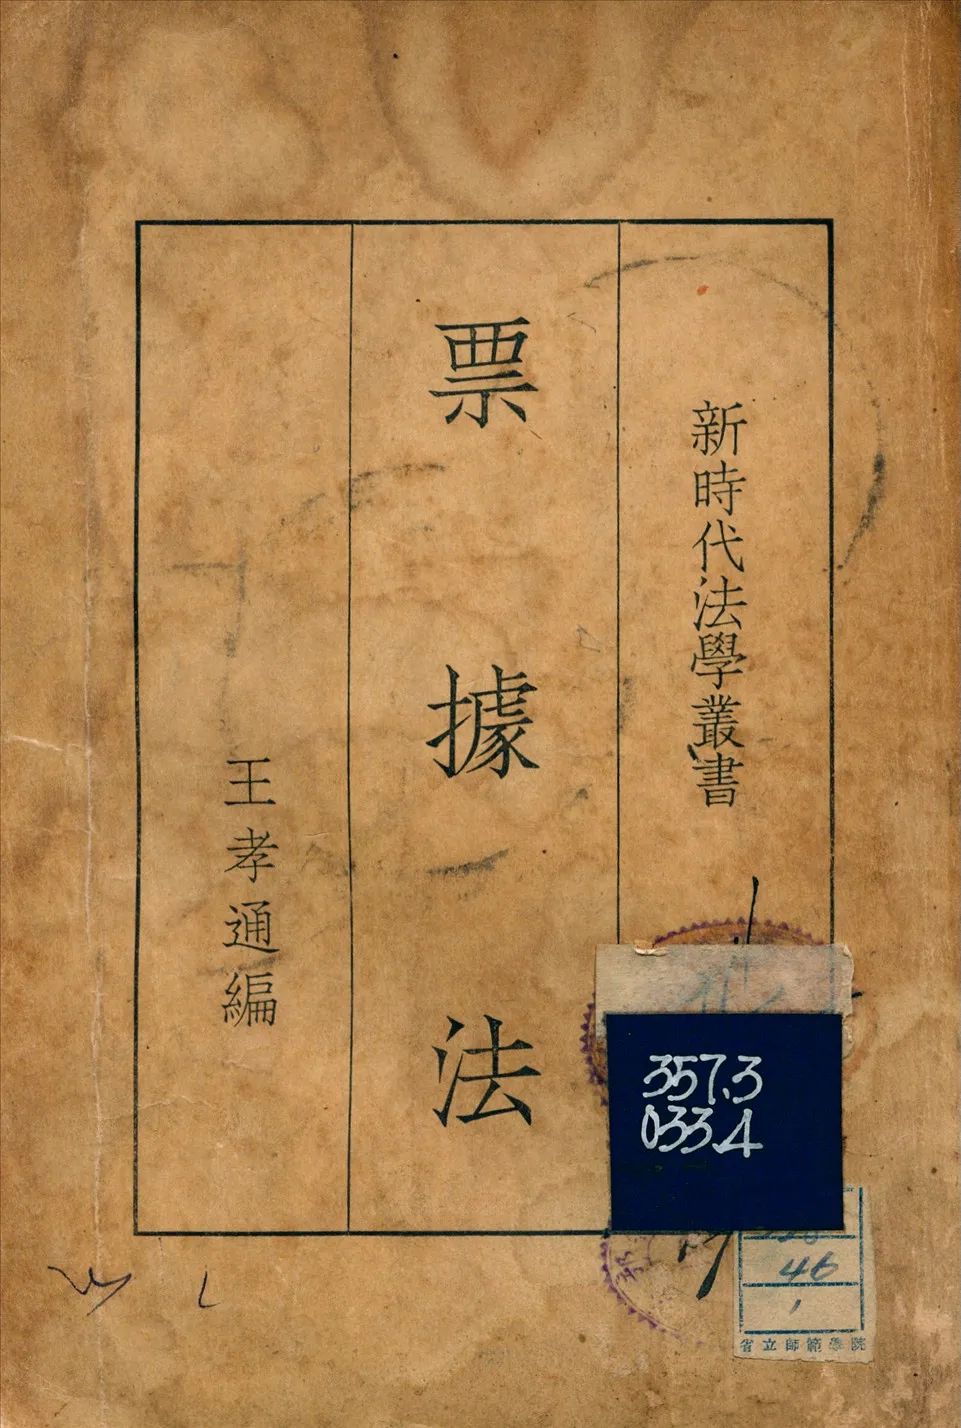 新時代法學叢書
票據法
王孝通編
357.3
033.4
46
1
省立師範學院